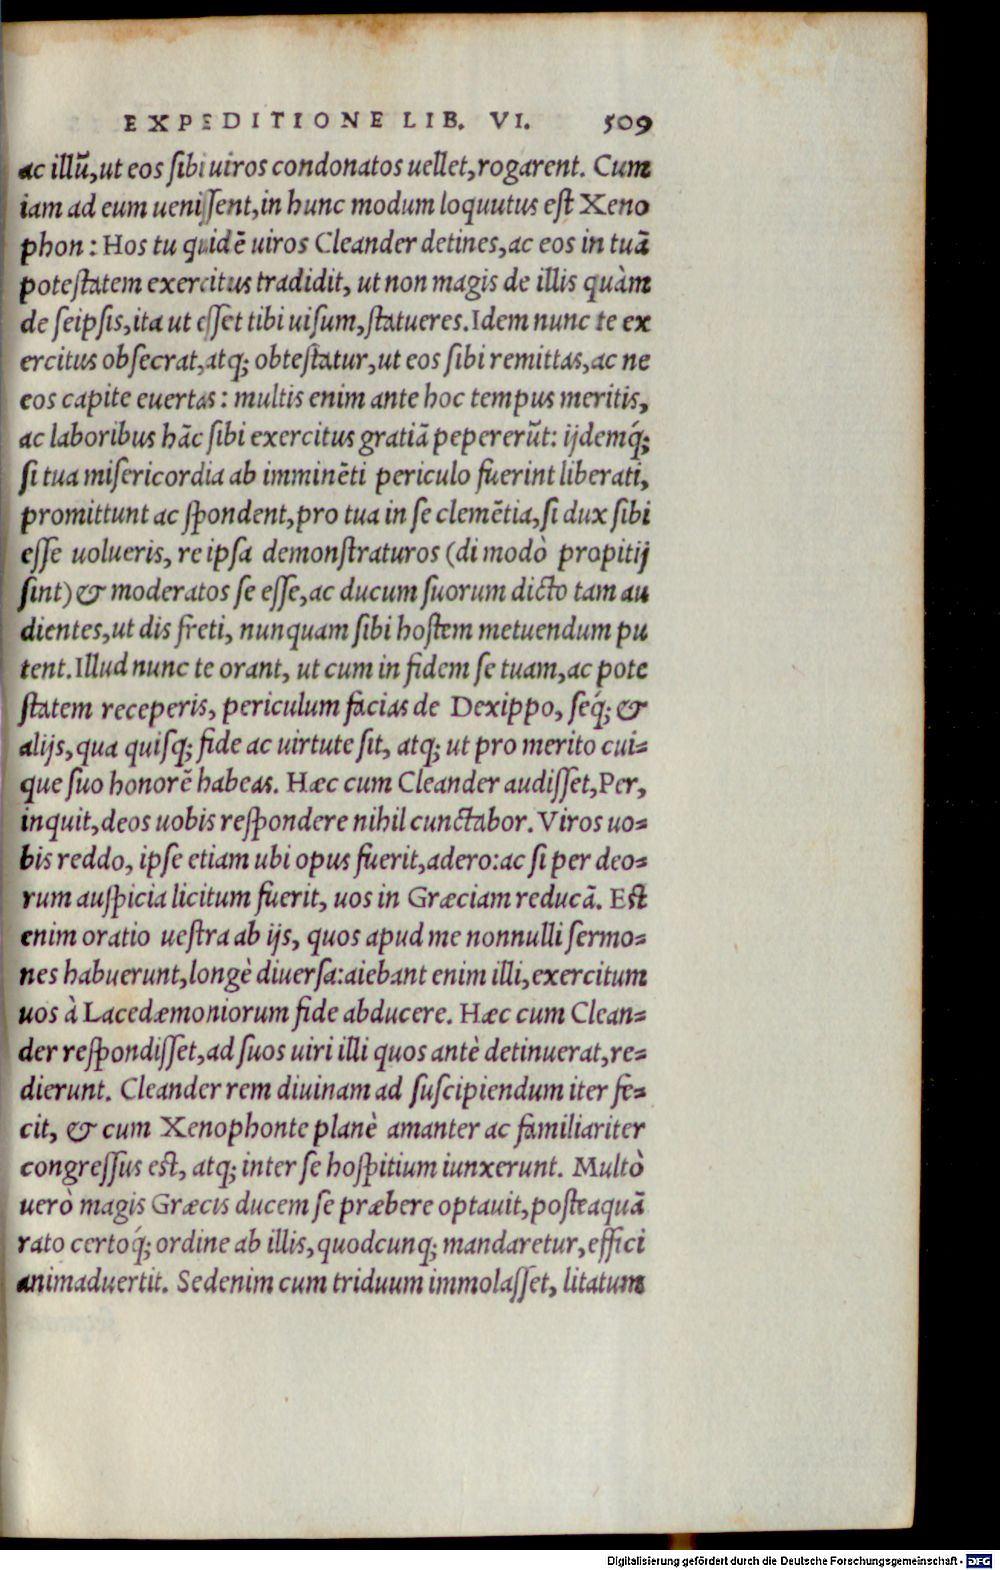 EXPEDITIONE LIB. VI. 509
ac illũ, ut eos sibi uiros condonatos uellet, rogarent. Cum
iam ad eum uenissent, in hunc modum loquutus est Xeno
phon: Hos tu quidẽ uiros Cleander detines, ac eos in tuã
potestatem exercitus tradidit, ut non magis de illis quàm
de seipsis, ita ut esset tibi uisum, statueres. Idem nunc te ex
ercitus obsecrat, atq; obtestatur, ut eos sibi remittas, ac ne
eos capite euertas: multis enim ante hoc tempus meritis,
ac laboribus hãc sibi exercitus gratiã pepererũt: ijdemq́;
si tua misericordia ab imminẽti periculo fuerint liberati,
promittunt ac spondent, pro tua in se clemẽtia, si dux sibi
esse uolueris, re ipsa demonstraturos (di modò propitij
sint) & moderatos se esse, ac ducum suorum dicto tam au
dientes, ut dis freti, nunquam sibi hostem metuendum pu
tent. Illud nunc te orant, ut cum in fidem se tuam, ac pote
statem receperis, periculum facias de Dexippo, seq́; &
alijs, qua quisq; fide ac uirtute sit, atq; ut pro merito cui=
que suo honorẽ habeas. Hæc cum Cleander audisset, Per,
inquit, deos uobis respondere nihil cunctabor. Viros uo=
bis reddo, ipse etiam ubi opus fuerit, adero: ac si per deo=
rum auspicia licitum fuerit, uos in Græciam reducã. Est
enim oratio uestra ab ijs, quos apud me nonnulli sermo=
nes habuerunt, longè diuersa: aiebant enim illi, exercitum
uos à Lacedæmoniorum fide abducere. Hæc cum Clean=
der respondisset, ad suos uiri illi quos antè detinuerat, re=
dierunt. Cleander rem diuinam ad suscipiendum iter fe=
cit, & cum Xenophonte planè amanter ac familiariter
congressus est, atq; inter se hospitium iunxerunt. Multò
uerò magis Græcis ducem se præbere optauit, posteaquã
rato certoq́; ordine ab illis, quodcunq; mandaretur, effici
animaduertit. Sedenim cum triduum immolasset, litatum
Digitalisierung gefördert durch die Deutsche Forschungsgemeinschaft - DFG